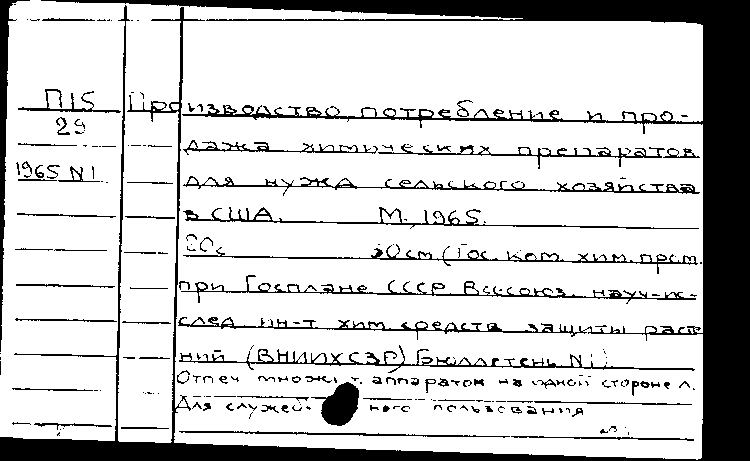 П15
29
1965 N1
Производство, потребление и про-
дажа химических препаратов
для нужд сельского хозяйства
в США. М., 1965.
20с 30см (Гос. ком. хим. пром.
при Госплане СССР Всесоюз. науч-ис-
след ин-т хим. средств защиты расте
ний (ВНИИХСЗР) Бюллетень N1)
Отпеч множит. аппаратом на одной стороне л.
Для служеб- ного пользования